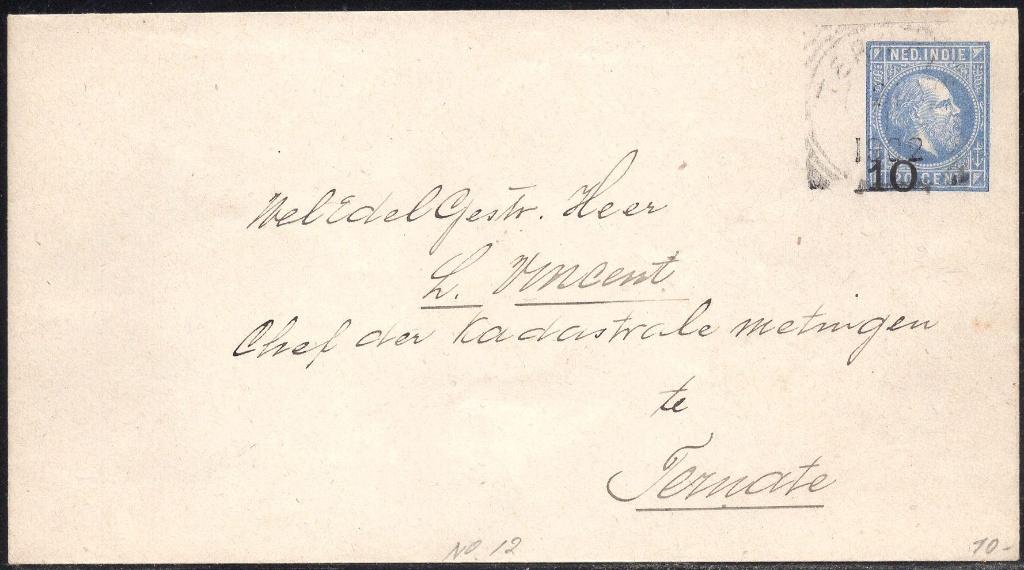 NED. INDIE
10
20 CENT
WelEdelGestr. Heer
L. Vincent
Chef der Kadastrale metingen
te
Ternate
No. 12
10-